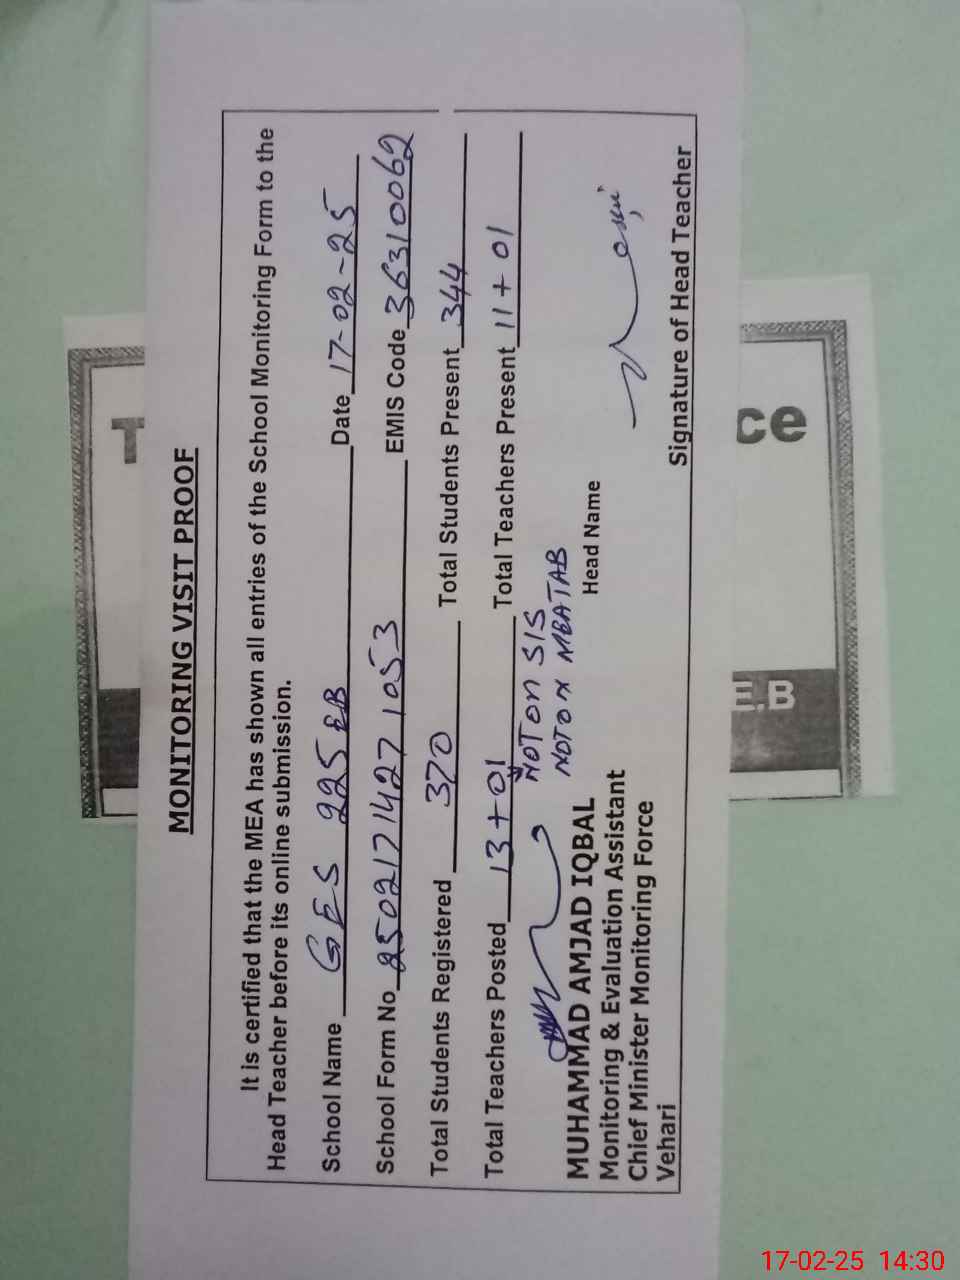 MONITORING VISIT PROOF
It is certified that the MEA has shown all entries of the School Monitoring Form to the
Head Teacher before its online submission.
School Name GES 225 EB Date 17-02-25
School Form No 250217 1427 1053 EMIS Code 36310062
Total Students Registered 370 Total Students Present 344
Total Teachers Posted 13+01 Total Teachers Present 11+01
NOT ON SIS
NOT ON MEATAB
MUHAMMAD AMJAD IQBAL
Monitoring & Evaluation Assistant
Chief Minister Monitoring Force
Vehari
Head Name
Signature of Head Teacher
T
ce
E.B
17-02-25 14:30